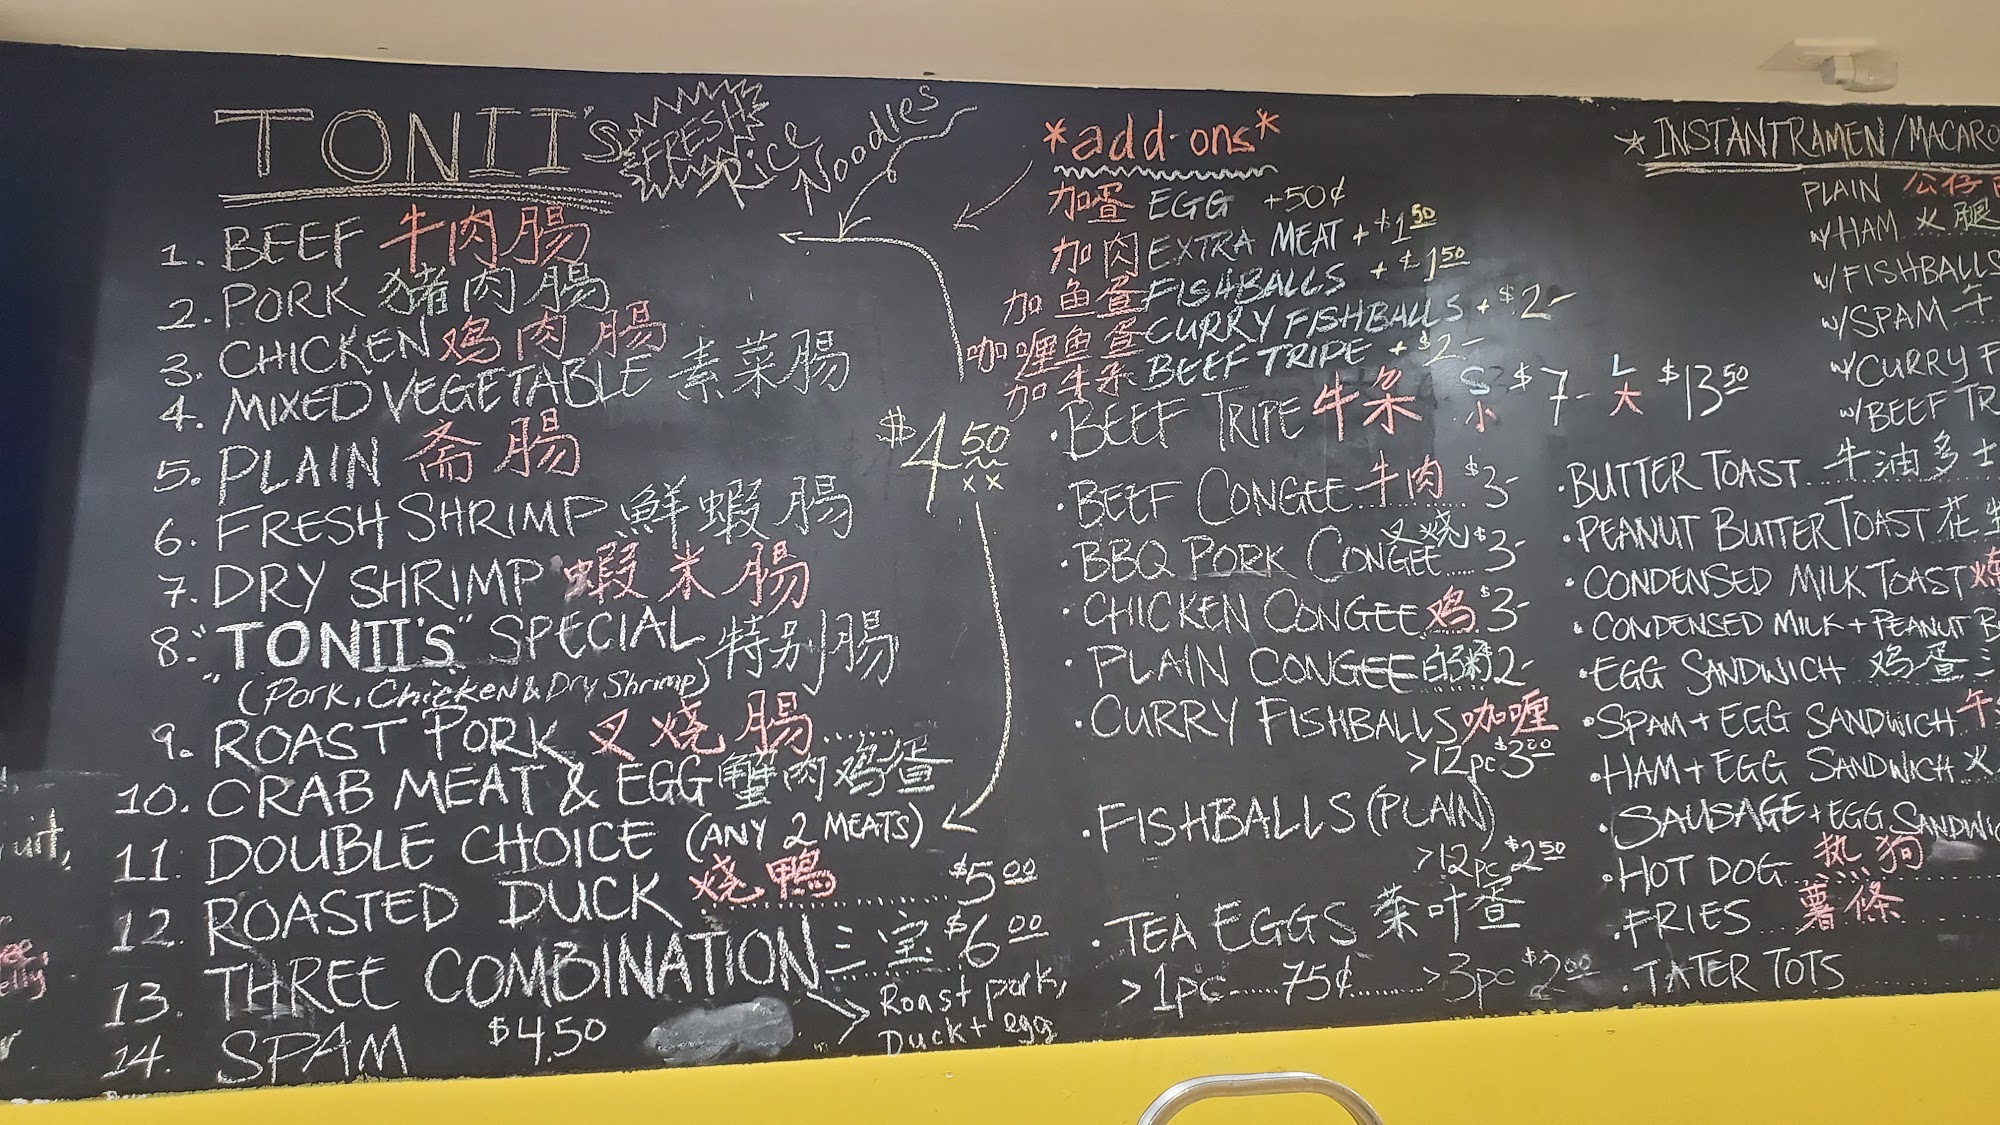 TONII's FRESH Rice Noodles
1. BEEF 牛肉腸
2. PORK 猪肉腸
3. CHICKEN 鸡肉腸
4. MIXED VEGETABLE 素菜腸
5. PLAIN 斋腸
$4.50
6. FRESH SHRIMP 鮮蝦腸
7. DRY SHRIMP 蝦米腸
8. "TONII's" SPECIAL 特别腸
(Pork, Chicken & Dry Shrimp)
9. ROAST PORK 叉烧腸
10. CRAB MEAT & EGG 蟹肉鸡蛋
11. DOUBLE CHOICE (ANY 2 MEATS)
12. ROASTED DUCK 烧鴨 $5.00
13. THREE COMBINATION 三宝 $6.00
Roast pork,
Duck + egg
14. SPAM $4.50
*add-ons*
加蛋 EGG +50¢
加肉 EXTRA MEAT +$1.50
加鱼蛋 FISHBALLS +$1.50
咖喱鱼蛋 CURRY FISHBALLS +$2-
加牛杂 BEEF TRIPE +$2-
· BEEF TRIPE 牛杂 S小 $7- L大 $13.50
· BEEF CONGEE 牛肉 $3-
· BBQ PORK CONGEE 叉烧 $3-
· CHICKEN CONGEE 鸡 $3-
· PLAIN CONGEE 白粥 2-
· CURRY FISHBALLS 咖喱
>12pc $3.00
· FISHBALLS (PLAIN)
>12pc $2.50
· TEA EGGS 茶叶蛋
>1pc 75¢ >3pc $2.00
* INSTANT RAMEN/MACARO
PLAIN 公仔
w/HAM 火腿
w/FISHBALLS
w/SPAM 午
w/CURRY F
w/BEEF TR
· BUTTER TOAST 牛油多士
· PEANUT BUTTER TOAST 花生
· CONDENSED MILK TOAST
· CONDENSED MILK + PEANUT B
· EGG SANDWICH 鸡蛋三
· SPAM + EGG SANDWICH 午
· HAM + EGG SANDWICH 火
· SAUSAGE + EGG SANDWIC
· HOT DOG 热狗
· FRIES 薯條
· TATER TOTS